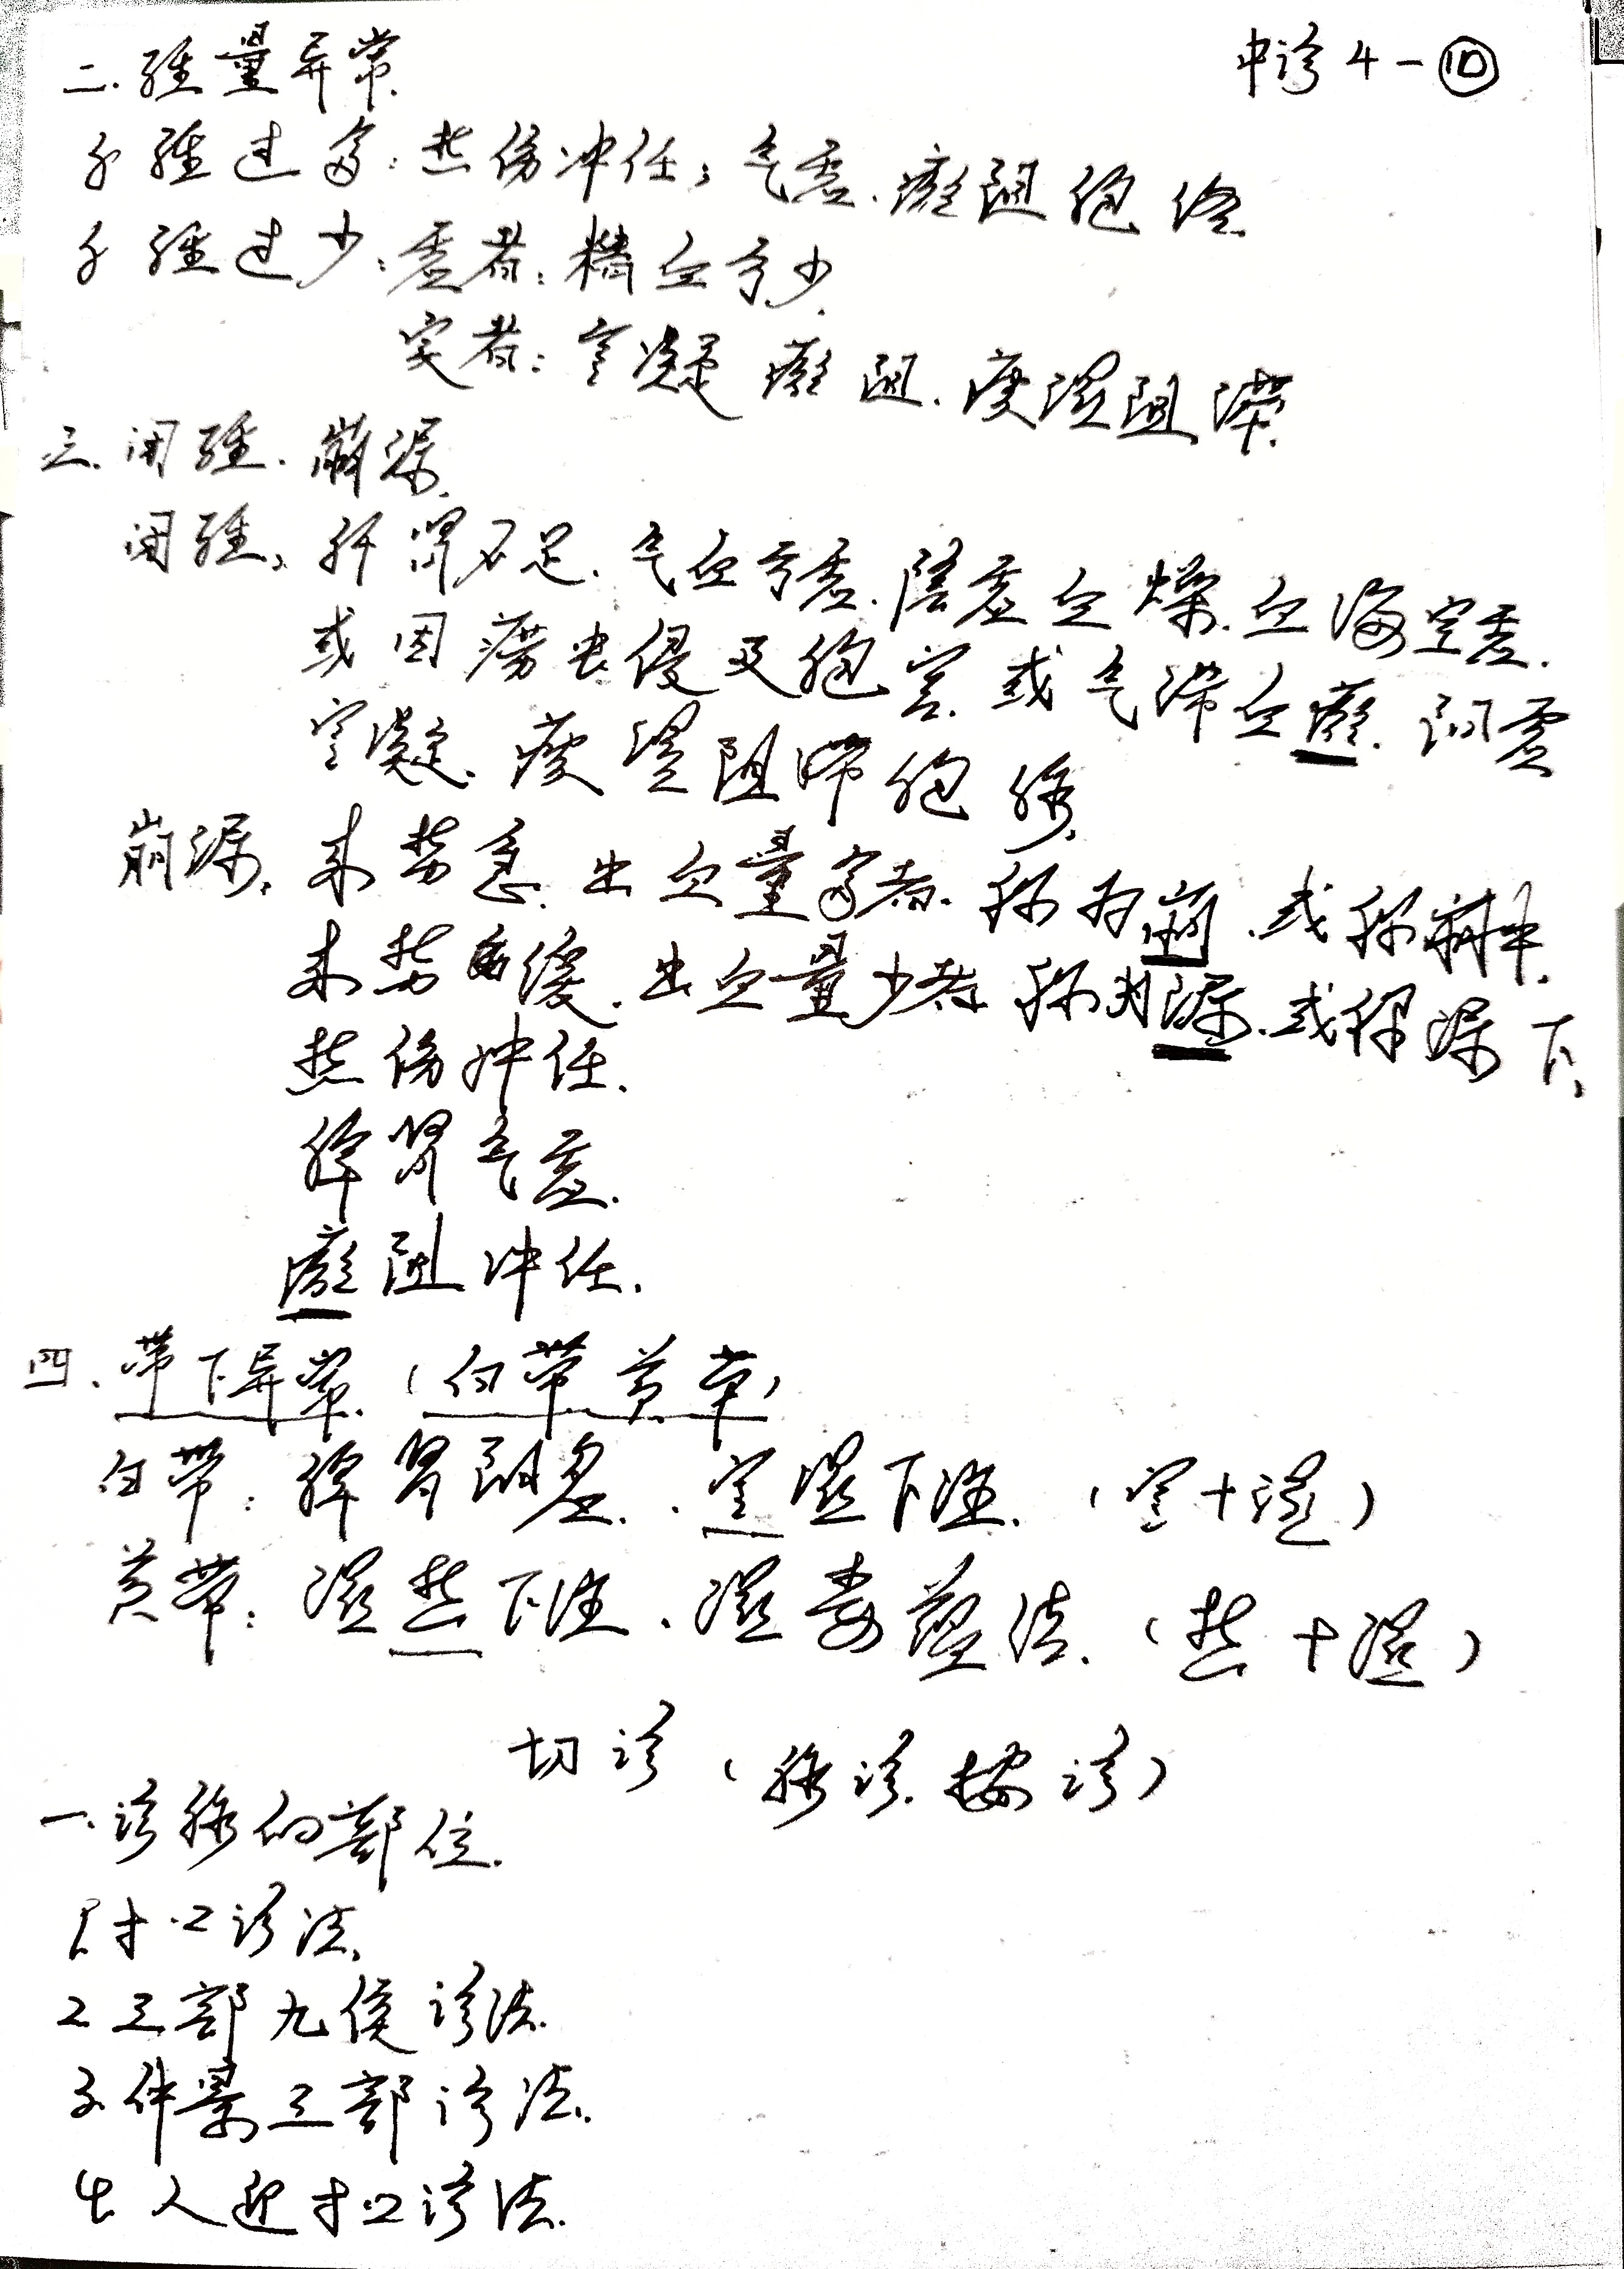 中诊4-⑩
二.经量异常.
月经过多:热伤冲任;气虚.瘀阻胞络
月经过少:虚者:精血亏少.
实者:寒凝瘀阻.痰湿阻滞.
三.闭经.崩漏.
闭经:肝肾不足.气血亏虚.阴虚血燥.血海空虚.
或因痨虫侵及胞宫.或气滞血瘀.阳虚
寒凝.痰湿阻滞胞脉.
崩漏.来势急.出血量多者.称为崩.或称崩中.
来势缓.出血量少者称为漏.或称漏下.
热伤冲任.
脾肾气虚.
瘀阻冲任.
四.带下异常.(白带黄带)
白带:脾肾阳虚..寒湿下注.(寒+湿)
黄带:湿热下注.湿毒蕴结.(热+湿)
切诊(脉诊.按诊)
一.诊脉的部位.
1.寸口诊法.
2.三部九候诊法.
3.仲景三部诊法.
4.人迎寸口诊法.